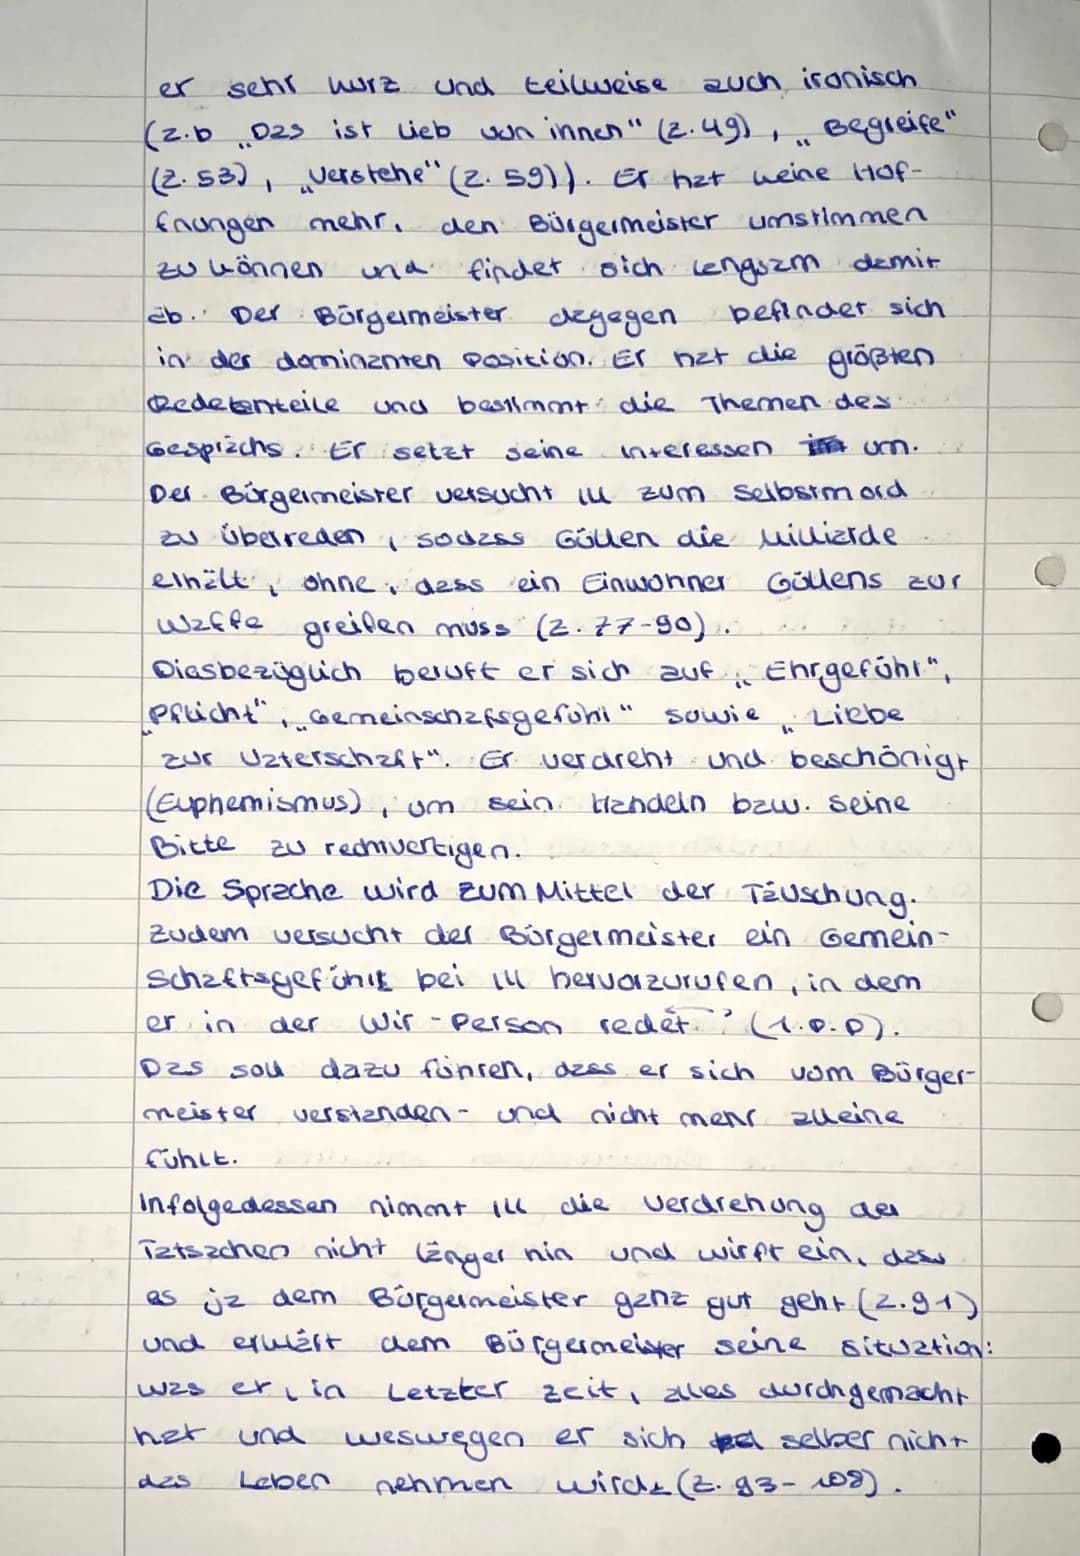 er sehr kurz und teilweise auch ironisch
(z.b „Das ist Lieb von innen" (Z.49), „Begreife"
(Z.53), „Verstehe" (Z.59)). Er hat keine Hof-
fnungen mehr, den Bürgermeister umstimmen
zu können und findet sich langsam damit
ab. Der Bürgermeister dagegen befindet sich
in der dominanten Position. Er hat die größten
Redeanteile und bestimmt die Themen des
Gesprächs. Er setzt seine Interessen um.
Der Bürgermeister versucht Ill zum Selbstmord
zu überreden, sodass Güllen die Milliarde
erhält, ohne, dass ein Einwohner Güllens zur
Waffe greifen muss (Z.77-90).
Diesbezüglich beruft er sich auf „Ehrgefühl",
„Pflicht", „Gemeinschaftsgefühl" sowie „Liebe
zur Vaterschaft". Er verdreht und beschönigt
(Euphemismus), um sein Handeln bzw. seine
Bitte zu rechtvertigen.
Die Sprache wird zum Mittel der Täuschung.
Zudem versucht der Bürgermeister ein Gemein-
schaftsgefühl bei Ill hervorzurufen, in dem
er in der Wir-Person redet ? (1.P.P).
Das soll dazu führen, dass er sich vom Bürger-
meister verstanden- und nicht mehr alleine
fühlt.
Infolgedessen nimmt Ill die Verdrehung der
Tatsachen nicht länger hin und wirft ein, dass
es ja dem Bürgermeister ganz gut geht (Z.91)
und erklärt dem Bürgermeister seine Situation:
was er, in Letzter Zeit, alles durchgemacht
hat und weswegen er sich selber nicht
das Leben nehmen wird (Z.93-108).